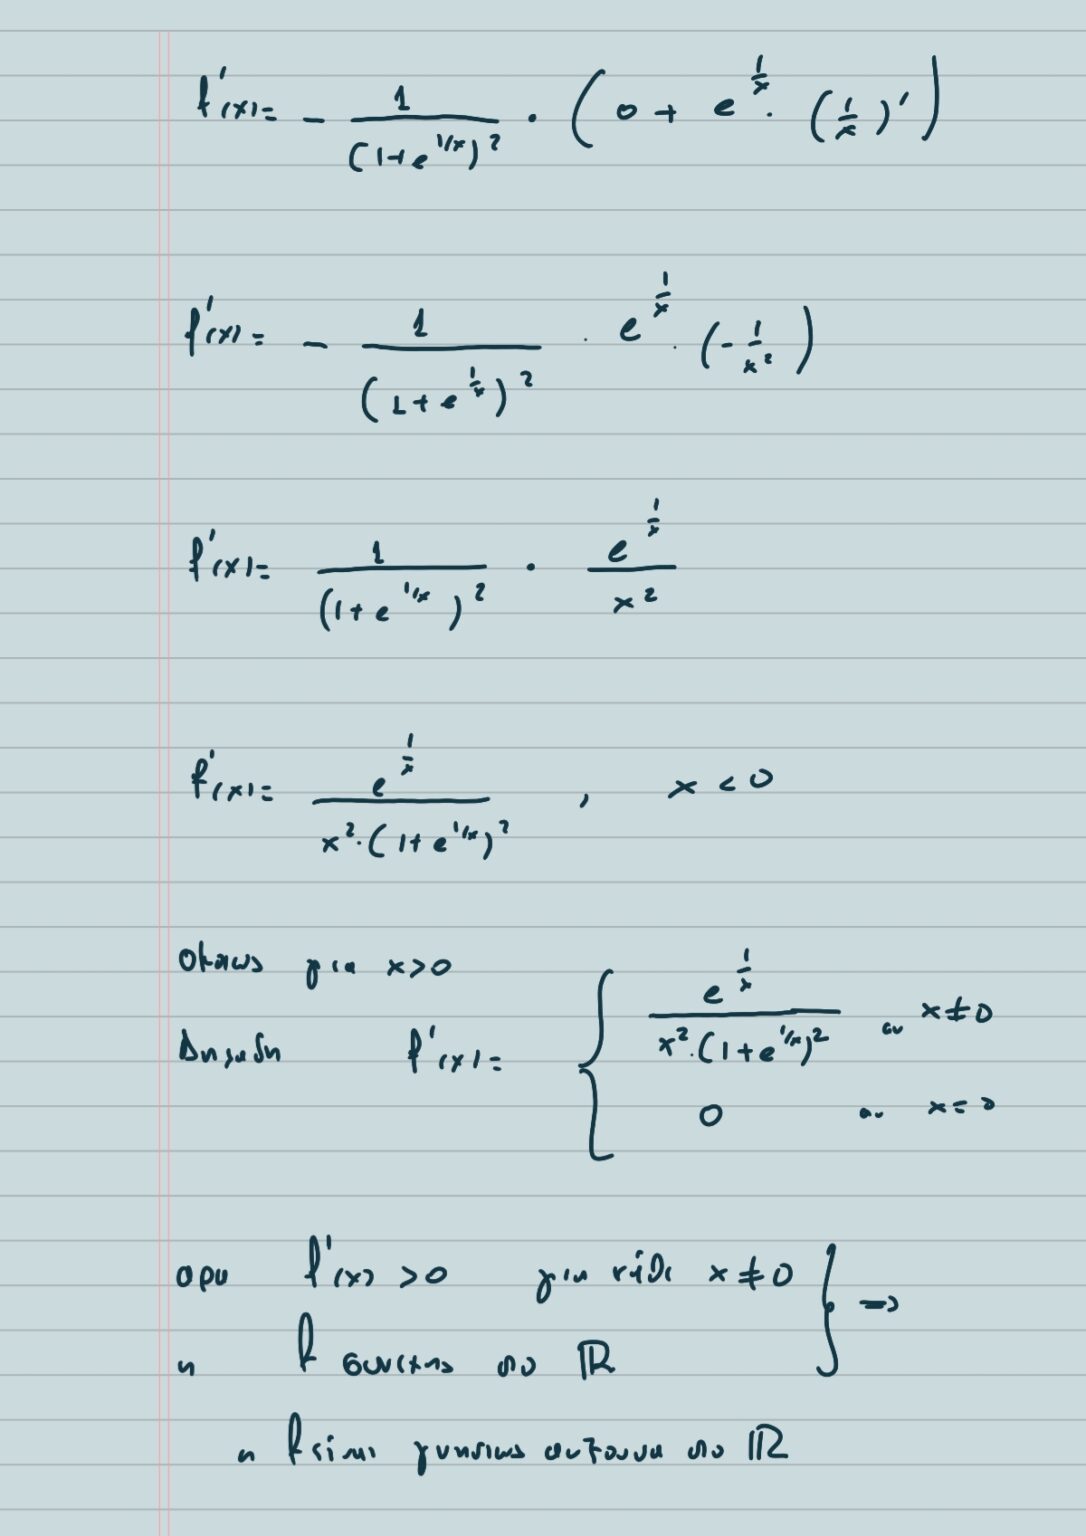 f'(x) = - 1/(1+e^{1/x})^2 · (0 + e^{1/x} · (1/x)')
f'(x) = - 1/(1+e^{1/x})^2 · e^{1/x} · (-1/x^2)
f'(x) = 1/(1+e^{1/x})^2 · e^{1/x}/x^2
f'(x) = e^{1/x}/(x^2·(1+e^{1/x})^2) , x < 0
Ομοιως για x>0
Δηλαδη f'(x) = { e^{1/x}/(x^2·(1+e^{1/x})^2) αν x≠0
0 αν x=0
αρα f'(x) >0 για κάθε x≠0 } ⇒
η f συνεχης στο ℝ
η f είναι γνησιως αυξουσα στο ℝ